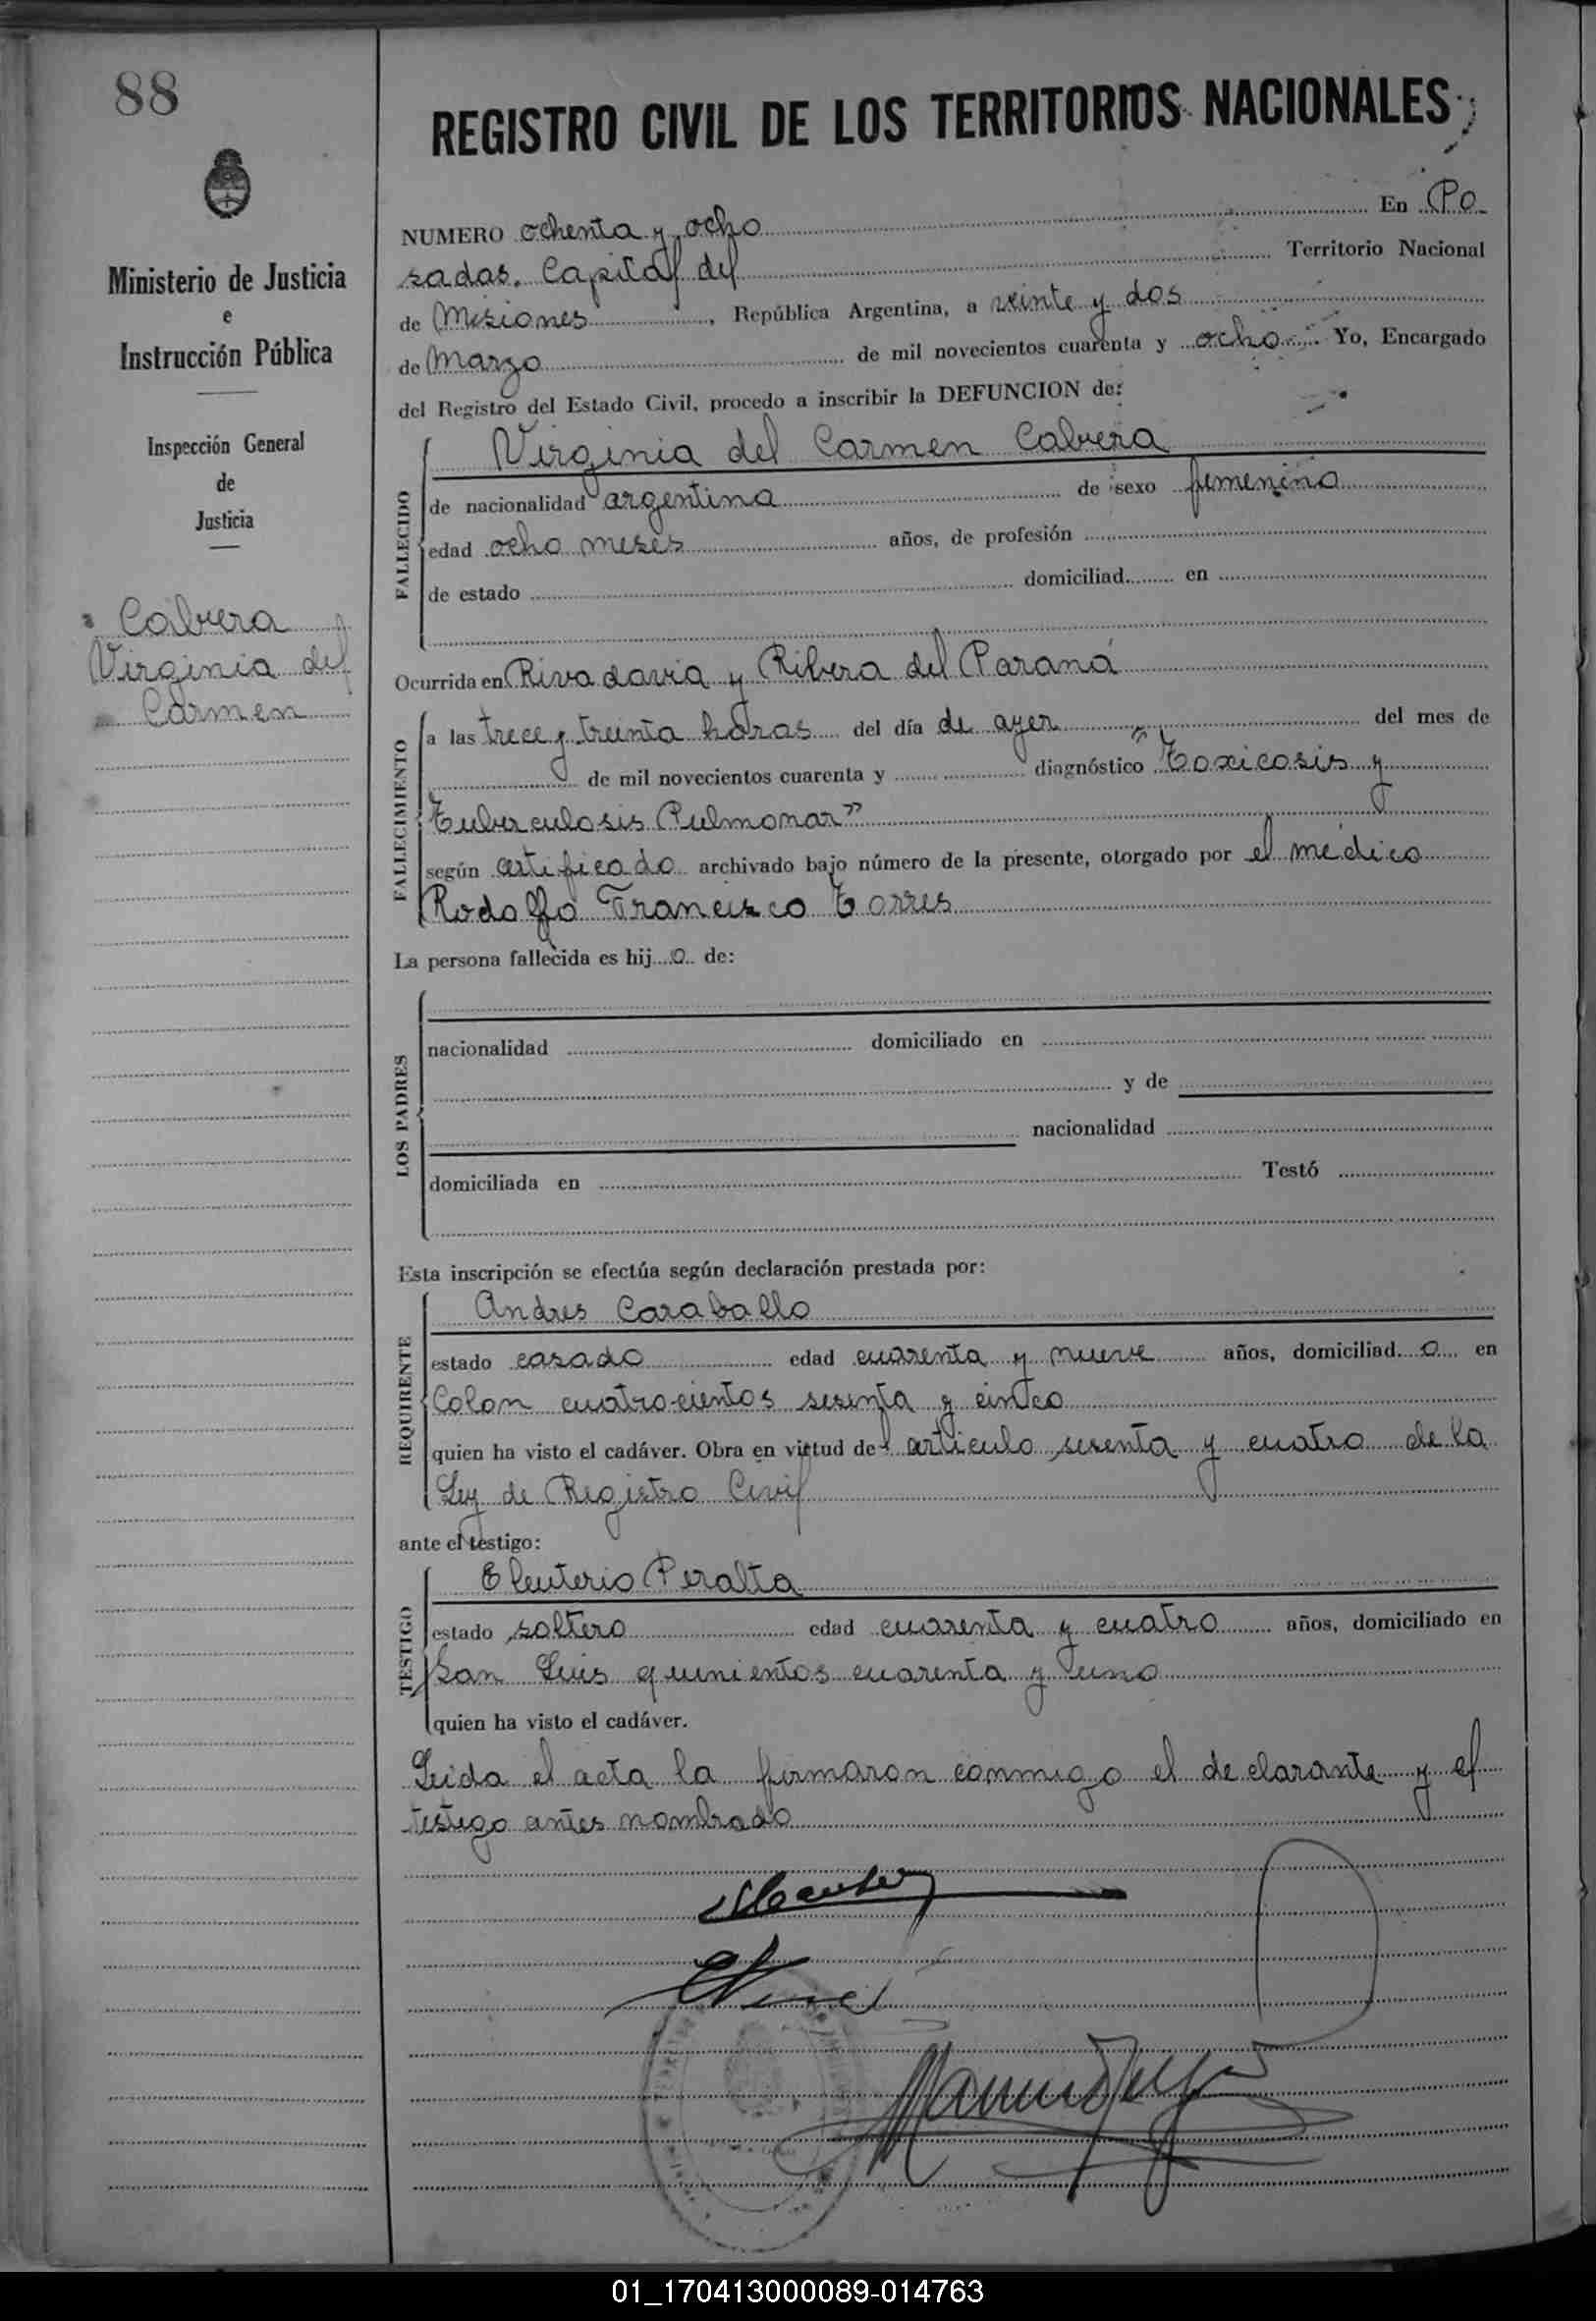 88
REGISTRO CIVIL DE LOS TERRITORIOS NACIONALES
Ministerio de Justicia
e
Instrucción Pública
Inspección General
de
Justicia
Cabrera
Virginia del
Carmen
NUMERO ochenta y ocho En Po
sadas. Capital del Territorio Nacional
de Misiones, República Argentina, a veinte y dos
de Marzo de mil novecientos cuarenta y ocho Yo, Encargado
del Registro del Estado Civil, procedo a inscribir la DEFUNCION de:
Virginia del Carmen Cabrera
FALLECIDO
de nacionalidad argentina de sexo femenino
edad ocho meses años, de profesión
de estado domiciliad en
Ocurrida en Rivadavia y Ribera del Paraná
FALLECIMIENTO
a las trece y treinta horas del día de ayer del mes de
de mil novecientos cuarenta y diagnóstico "Toxicosis y
Tuberculosis Pulmonar"
según certificado archivado bajo número de la presente, otorgado por el médico
Rodolfo Francisco Torres
La persona fallecida es hij a de:
LOS PADRES
nacionalidad domiciliado en
y de
nacionalidad
domiciliada en Testó
Esta inscripción se efectúa según declaración prestada por:
REQUIRENTE
Andres Caraballo
estado casado edad cuarenta y nueve años, domiciliad o en
Colon cuatrocientos sesenta y cinco
quien ha visto el cadáver. Obra en virtud del artículo sesenta y cuatro de la
Ley de Registro Civil
ante el testigo:
TESTIGO
Eleuterio Peralta
estado soltero edad cuarenta y cuatro años, domiciliado en
San Luis quinientos cuarenta y uno
quien ha visto el cadáver.
Leida el acta la firmaron conmigo el declarante y el
testigo antes nombrado
01_170413000089-014763